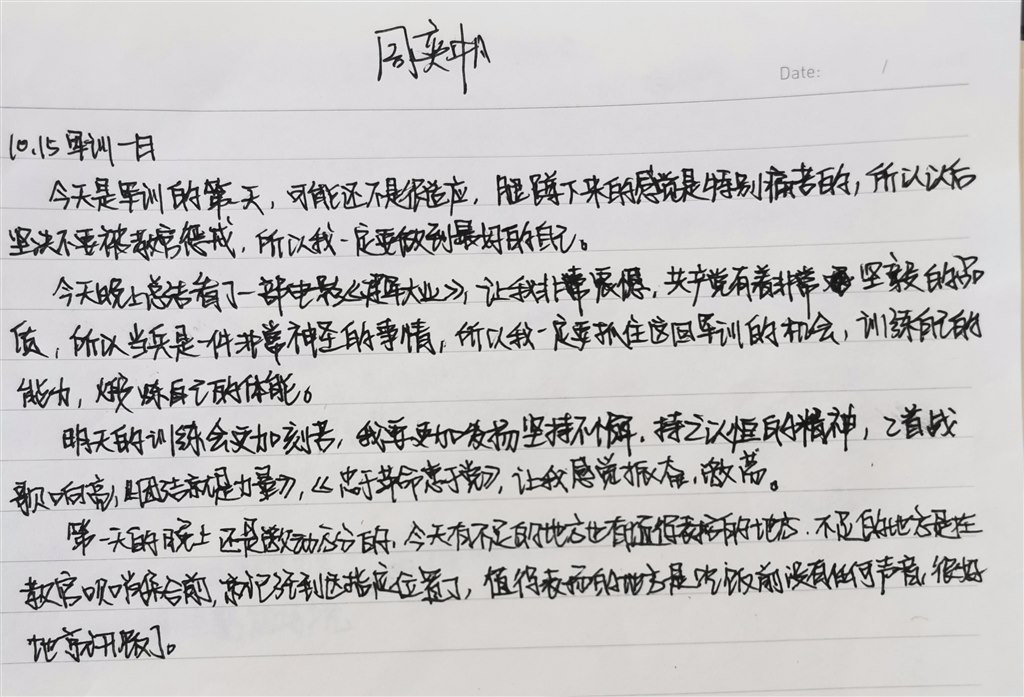 周奕帆
Date: /
10.15军训一日
今天是军训的第一天，可能还不是很适应，腿蹲下来的感觉是特别痛苦的，所以以后
坚决不要被教官惩戒，所以我一定要做到最好的自己。
今天晚上总结看了一部电影《建军大业》，让我非常震憾，共产党有着非常坚毅的品
质，所以当兵是一件非常神圣的事情，所以我一定要抓住这回军训的机会，训练自己的
能力，煅炼自己的体能。
明天的训练会更加刻苦，我要更加发扬坚持不懈，持之以恒的精神，2首战
歌响亮，《团结就是力量》，《忠于革命忠于党》，让我感觉振奋，激荡。
第一天的晚上还是激动万分的，今天有不足的地方也有值得表扬的地方，不足的地方是在
教官吹哨集合前，就已经到达指应位置了，值得表扬的地方是吃饭前没有任何声音，很好
地京开饭了。